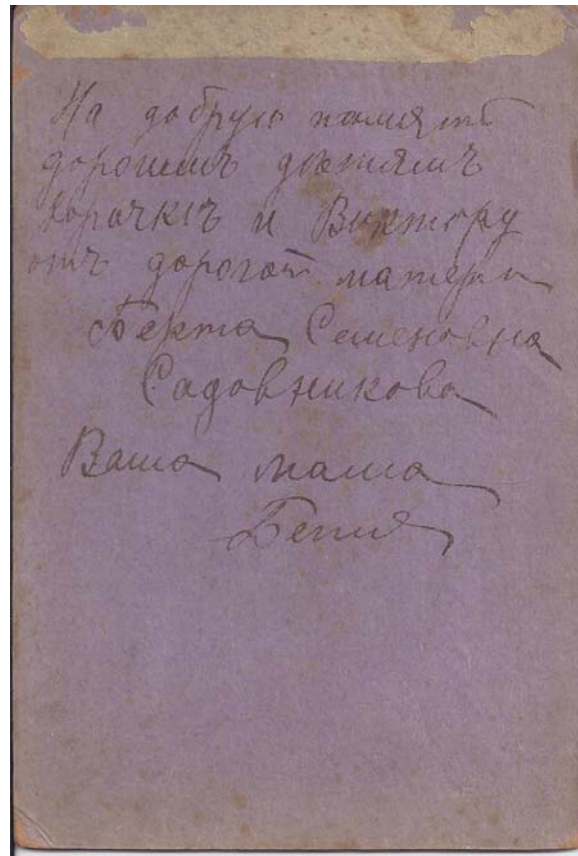 На добрую память
дорогимъ дѣтямъ
и Виктору
отъ дорогой матери
Берта Семеновна
Садовникова
Ваша мама